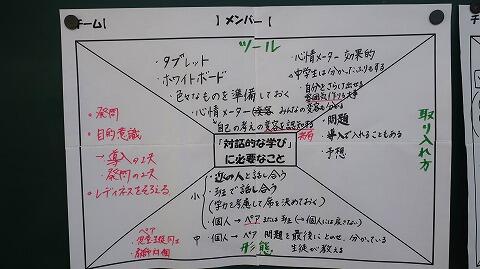 チーム【
】メンバー【
ツール
・タブレット
・ホワイトボード
・色々なものを準備しておく
・心情メーター
みんなの変容も分かる
自分の考えの変容を認知
・心情メーター 効果的
中学生は分かったふりもする
自分をさらけ出せる
雰囲気作りも大事
・問題
・導入で入れることもある
・予想
取り入れ方
「対話的な学び」
に必要なこと
・発問
・目的意識
→導入の工夫
・発問の工夫
・レディネスをそろえる
小
・近くの人と話し合う
・班で話し合う
(学力を考慮して席を決めておく)
・個人→ペアまたは班(→個人には戻さない)
中
・個人→ペア 問題を最後にとめせ、分かっている
生徒が教える
形態
・ペア
・児童生徒同士
・教師対個